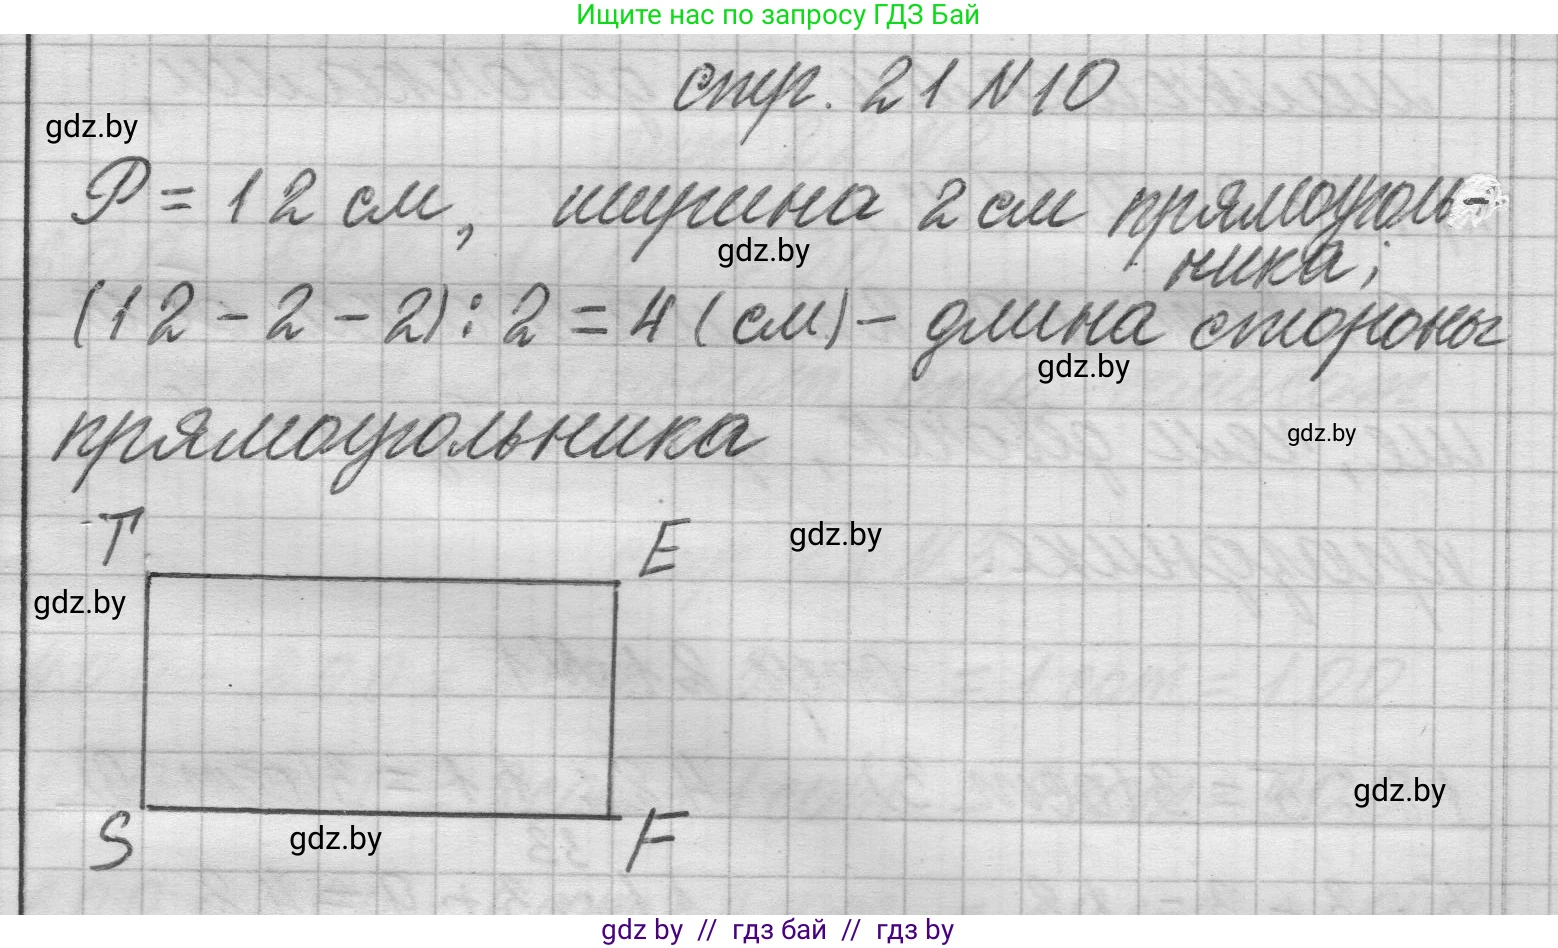 Ищите нас по запросу ГДЗ Бай
стр. 21 N10
gdz.by
P = 12 см, ширина 2 см прямоуголь-
gdz.by
ника;
(12 - 2 - 2) : 2 = 4 (см) - длина стороны
gdz.by
прямоугольника
gdz.by
T E
gdz.by
gdz.by
gdz.by
S F
gdz.by
gdz by // гдз бай // гдз by